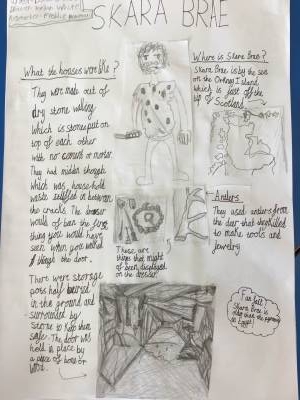 SKARA BRAE
What the houses were like?
They were made out of
dry stone walling
which is stone put on
top of each other
with no cement or mortar.
They had midden though
which was household
waste stuffed in between
the cracks. The dresser
would of been the first
thing you would have
seen when you walked
through the door.
There were storage
pots half buried
in the ground and
surrounded by
stone to keep them
safer. The door was
held in place by
a piece of bone or
wood.
These are
things that might
of been displayed
on the dresser.
Where is Skara Brae?
Skara Brae is by the sea
on the Orkney Island
which is just off the
tip of Scotland
Antlers
They used antlers from
the deer that they killed
to make tools and
jewelry
Fun fact
Skara Brae is
older than the pyramids
in Egypt!